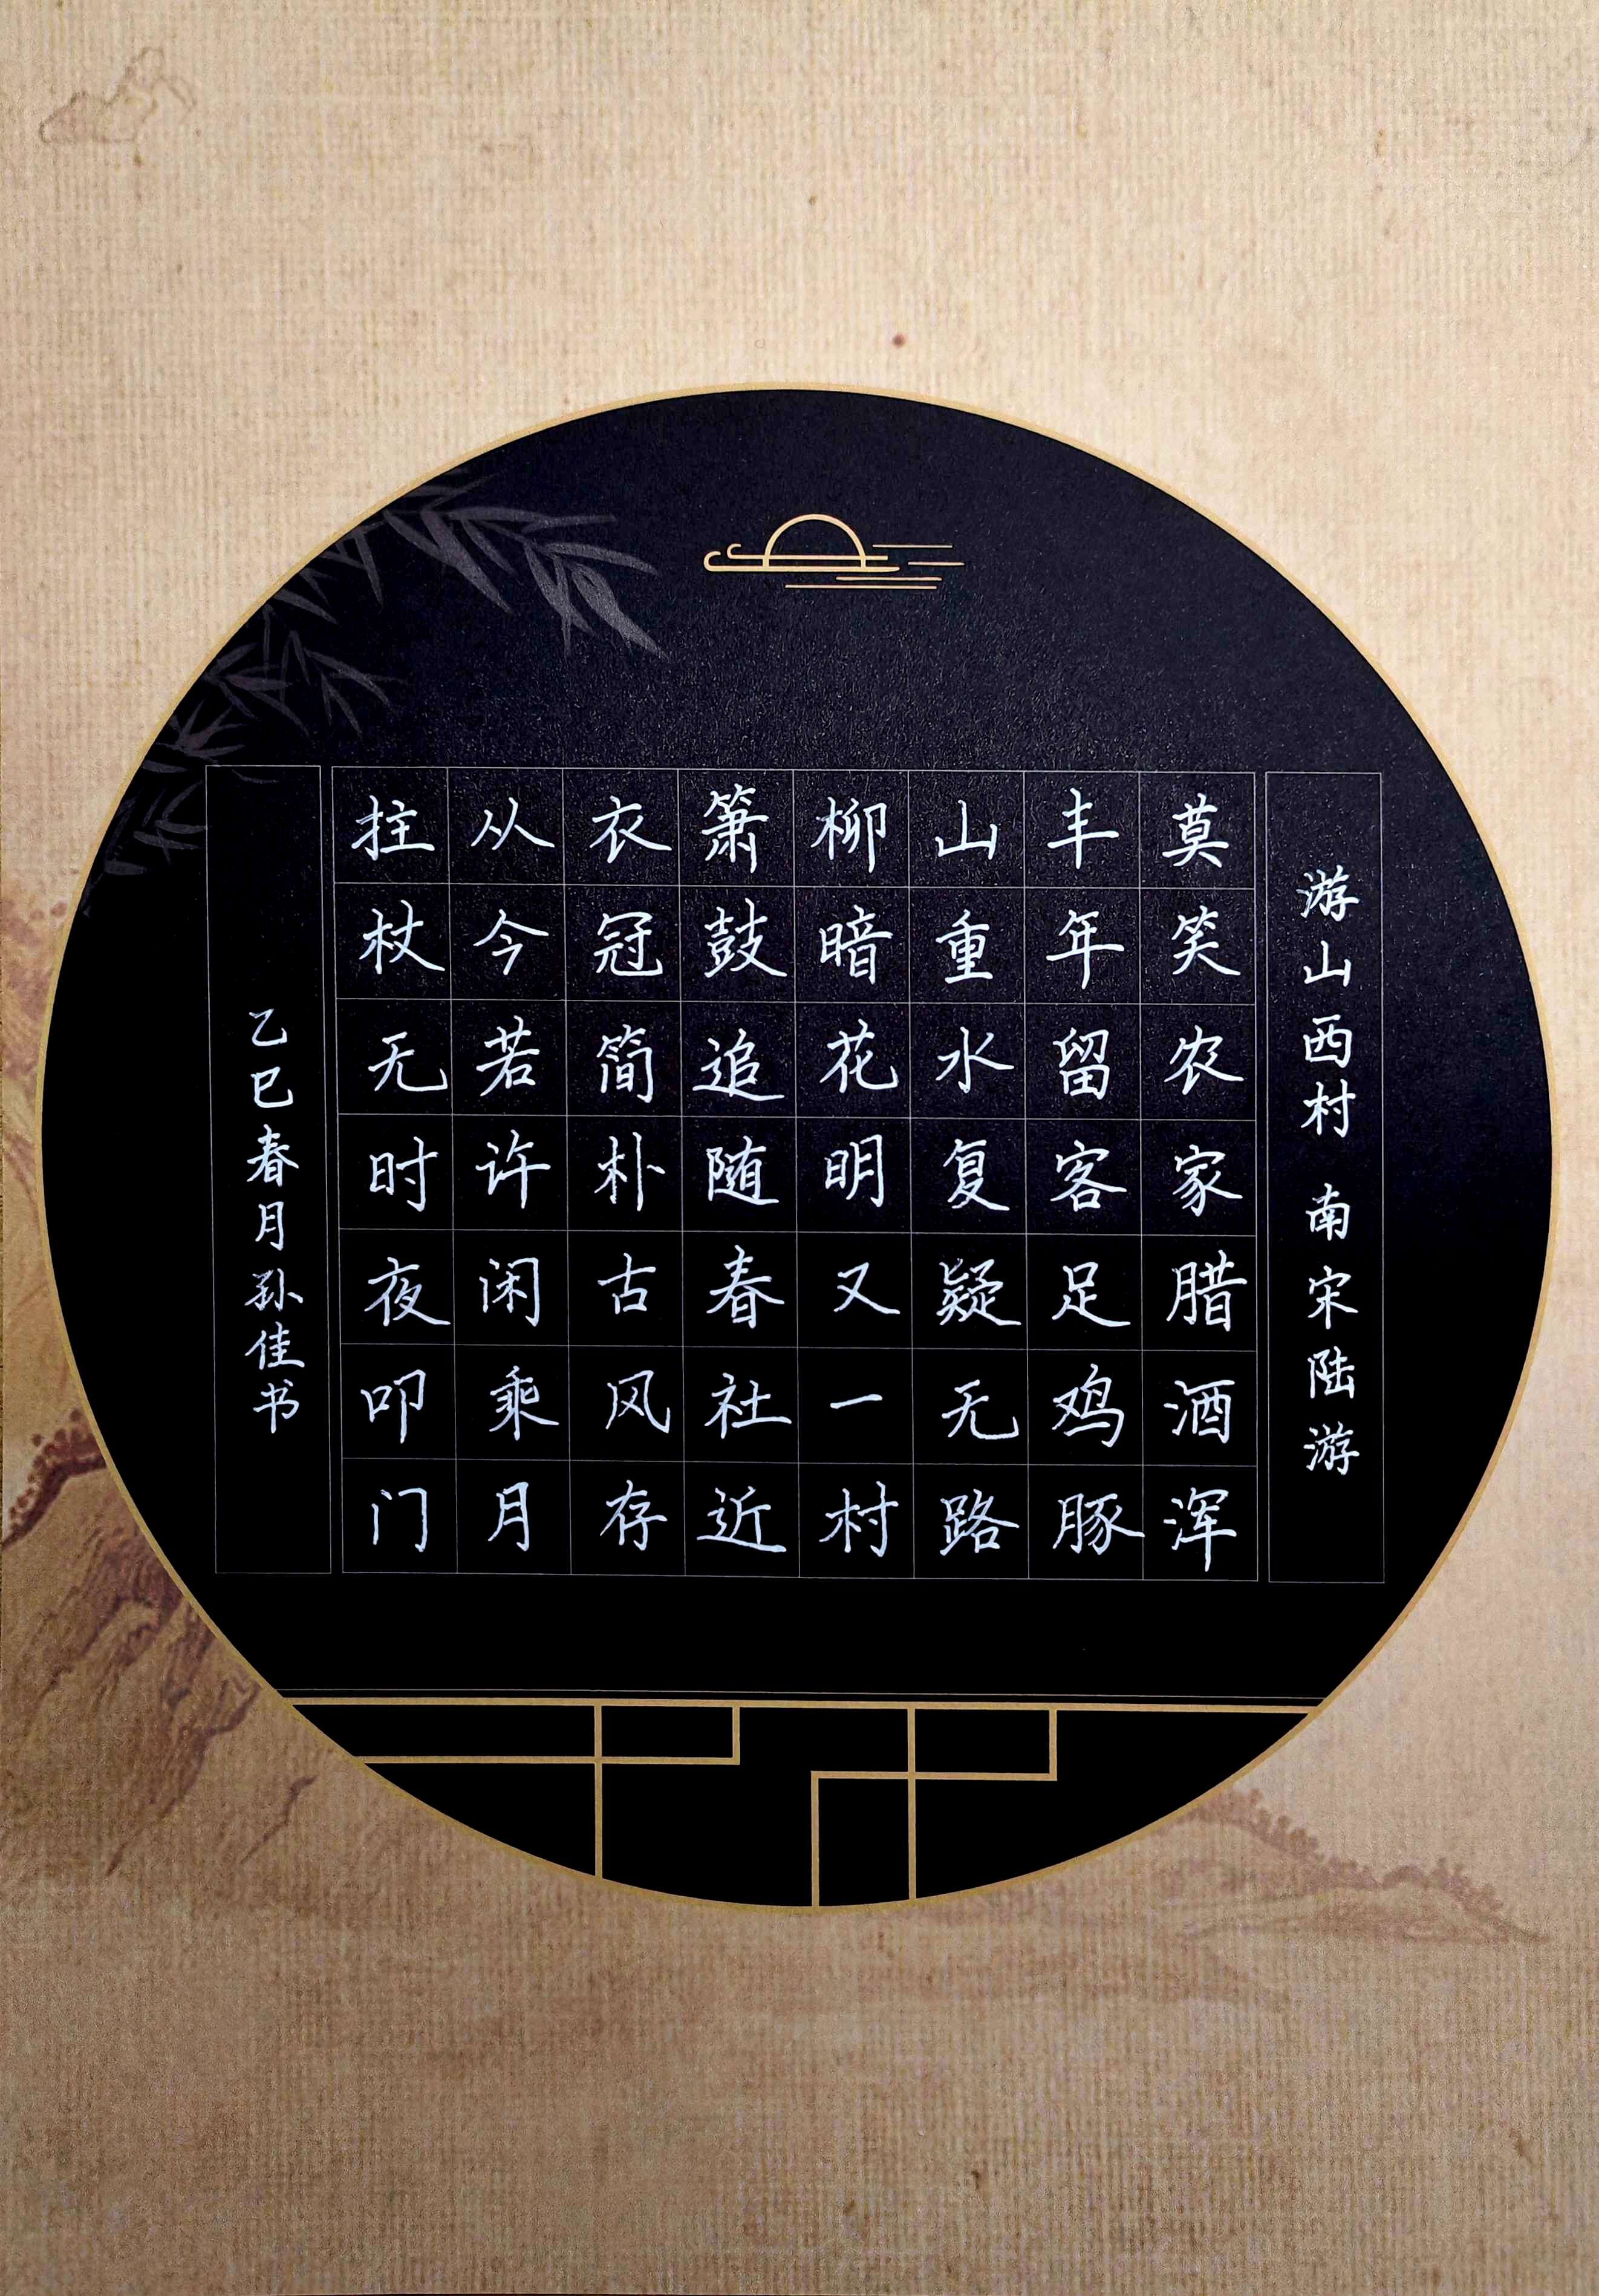 游山西村 南宋陆游
莫笑农家腊酒浑
丰年留客足鸡豚
山重水复疑无路
柳暗花明又一村
箫鼓追随春社近
衣冠简朴古风存
从今若许闲乘月
拄杖无时夜叩门
乙巳春月孙佳书